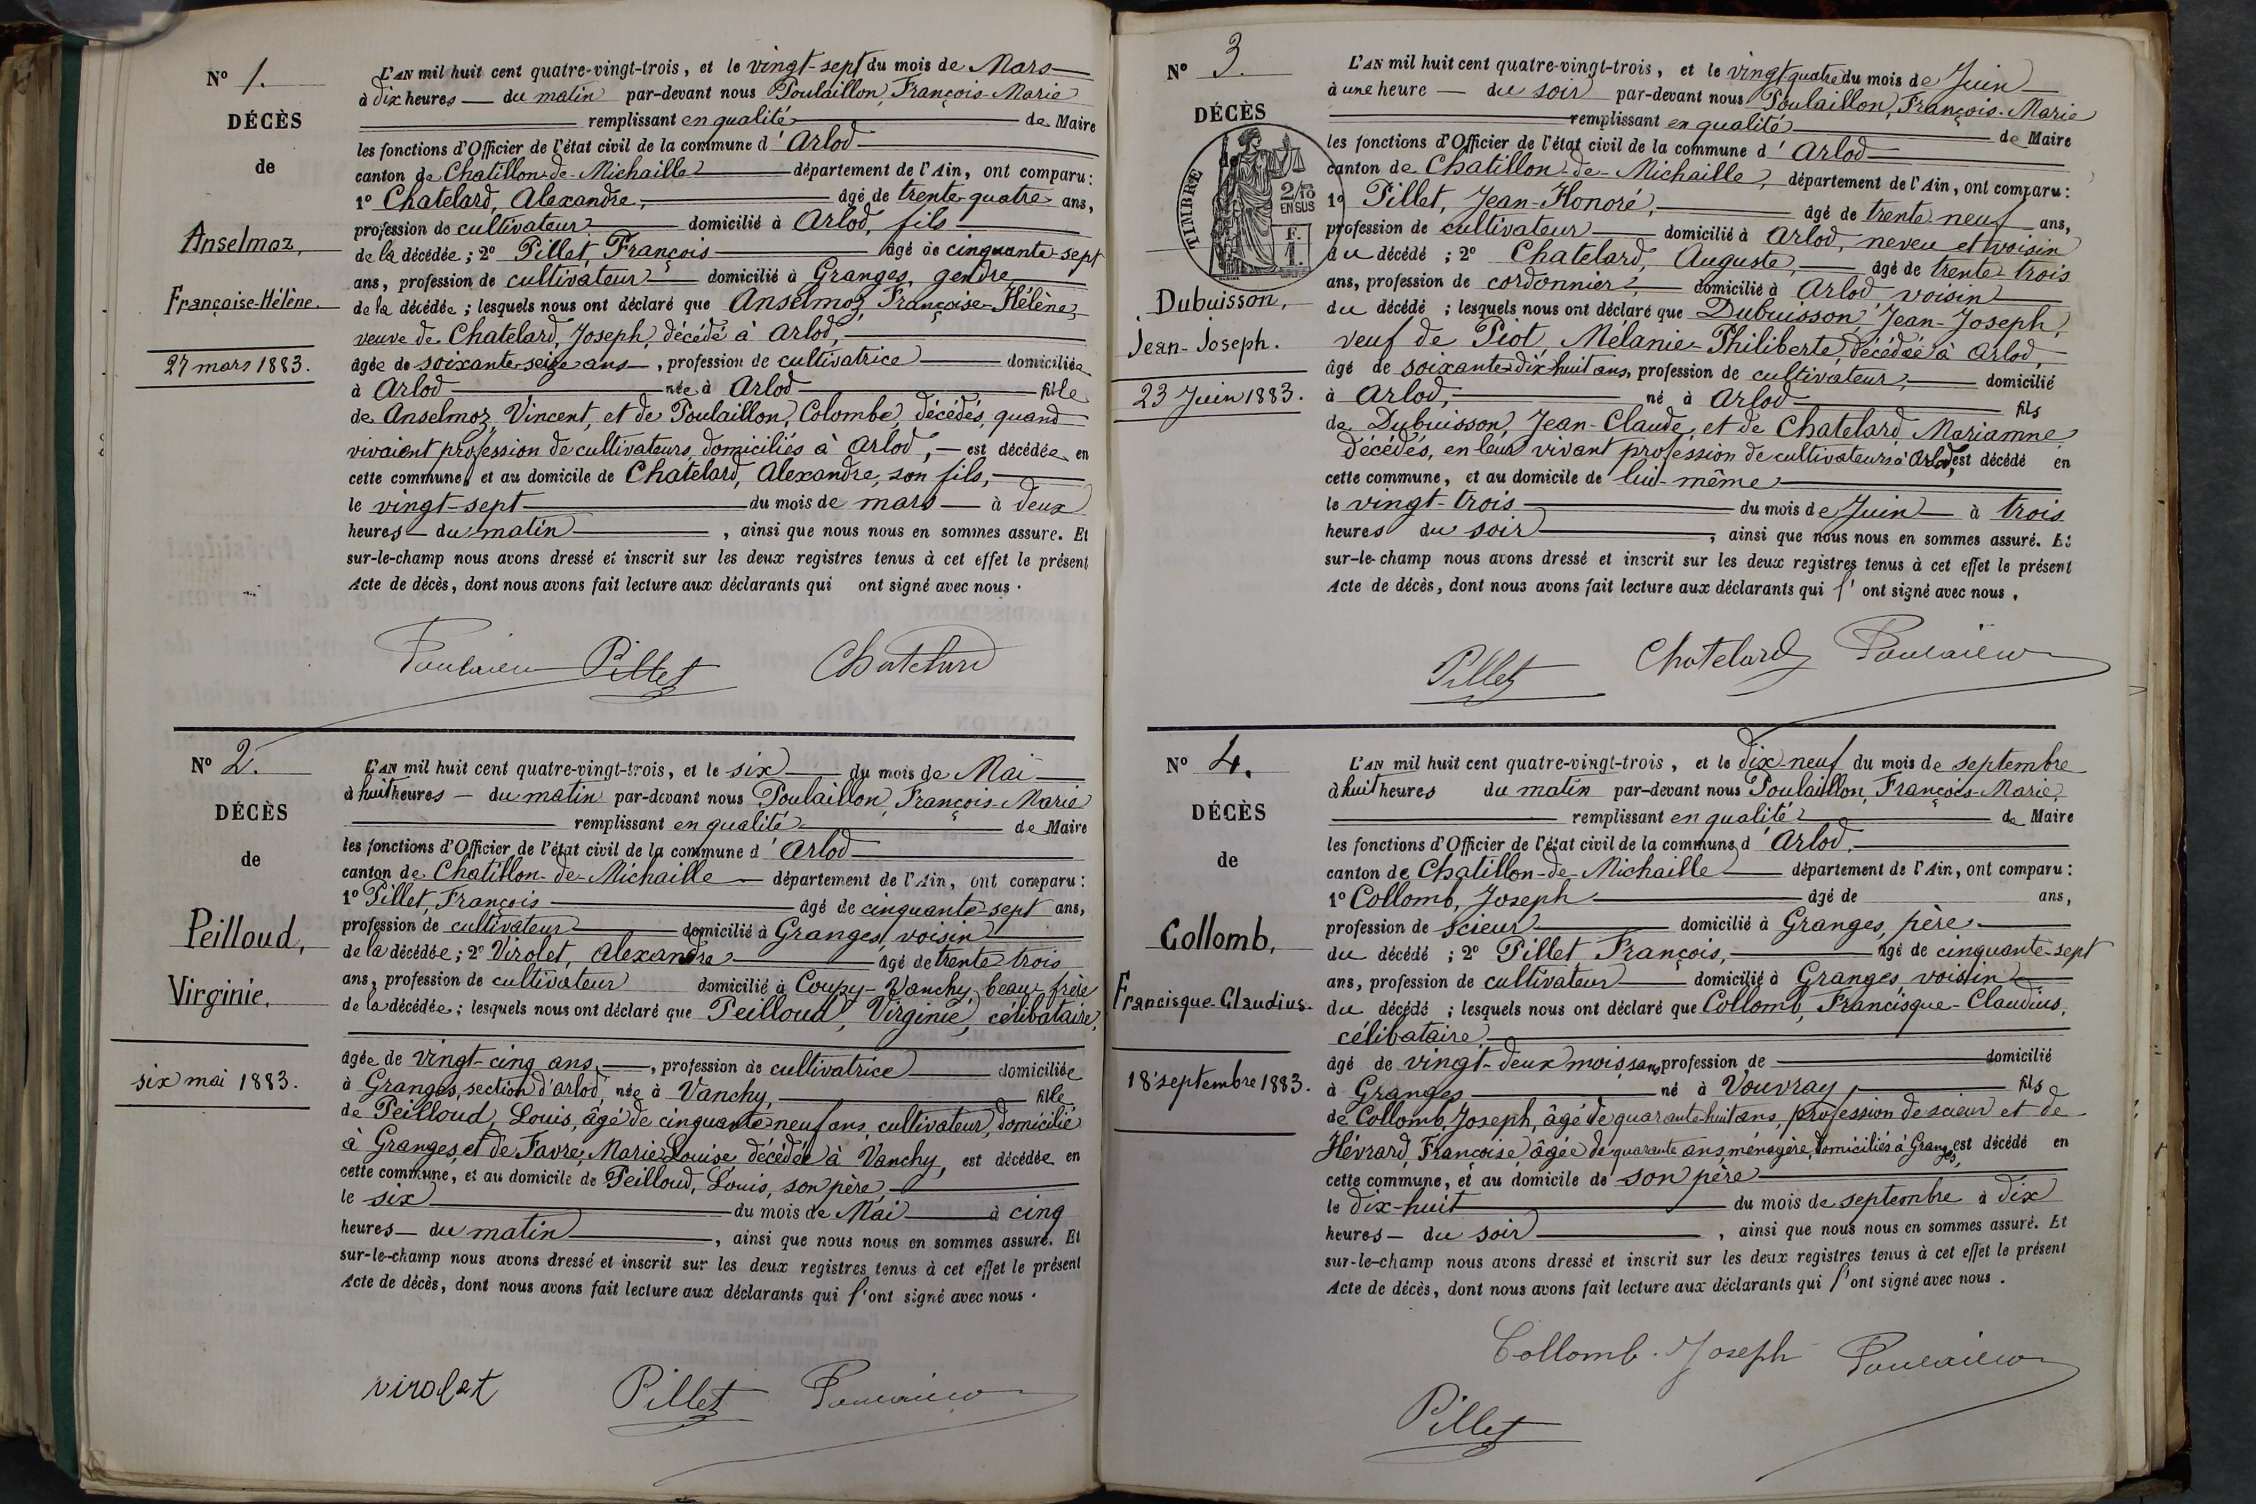 N° 1.
DÉCÈS
de
Anselmoz,
Françoise-Hélène.
27 mars 1883.
L'AN mil huit cent quatre-vingt-trois, et le vingt-sept du mois de Mars
à dix heures du matin par-devant nous Poulaillon, François-Marie
remplissant en qualité de Maire
les fonctions d'Officier de l'état civil de la commune d'Arlod
canton de Chatillon-de-Michaille département de l'Ain, ont comparu:
1° Chatelard, Alexandre, âgé de trente quatre ans,
profession de cultivateur domicilié à Arlod, fils
de la décédée; 2° Pillet, François âgé de cinquante-sept
ans, profession de cultivateur domicilié à Granges, gendre
de la décédée; lesquels nous ont déclaré que Anselmoz, Françoise-Hélène,
veuve de Chatelard, Joseph, décédé à Arlod,
âgée de soixante-seize ans, profession de cultivatrice domiciliée
à Arlod née à Arlod fille
de Anselmoz, Vincent, et de Poulaillon, Colombe, décédés, quand
vivaient profession de cultivateurs domiciliés à Arlod, est décédée en
cette commune, et au domicile de Chatelard, Alexandre, son fils,
le vingt-sept du mois de mars à deux
heures du matin, ainsi que nous nous en sommes assuré. Et
sur-le-champ nous avons dressé et inscrit sur les deux registres tenus à cet effet le présent
Acte de décès, dont nous avons fait lecture aux déclarants qui ont signé avec nous.
Pillet Chatelard
N° 2.
DÉCÈS
de
Peilloud,
Virginie.
six mai 1883.
L'AN mil huit cent quatre-vingt-trois, et le six du mois de Mai
à huit heures du matin par-devant nous Poulaillon, François-Marie
remplissant en qualité de Maire
les fonctions d'Officier de l'état civil de la commune d'Arlod
canton de Chatillon-de-Michaille département de l'Ain, ont comparu:
1° Pillet, François âgé de cinquante-sept ans,
profession de cultivateur domicilié à Granges, voisin
de la décédée; 2° Virolet, Alexandre âgé de trente trois
ans, profession de cultivateur domicilié à Coupy-Vanchy, beau-frère
de la décédée; lesquels nous ont déclaré que Peilloud, Virginie, célibataire,
âgée de vingt-cinq ans, profession de cultivatrice domiciliée
à Granges, section d'arlod, née à Vanchy, fille
de Peilloud, Louis, âgé de cinquante neuf ans, cultivateur, domicilié
à Granges, et de Favre, Marie Louise décédée à Vanchy, est décédée en
cette commune, et au domicile de Peilloud, Louis, son père,
le six du mois de Mai à cinq
heures du matin, ainsi que nous nous en sommes assuré. Et
sur-le-champ nous avons dressé et inscrit sur les deux registres tenus à cet effet le présent
Acte de décès, dont nous avons fait lecture aux déclarants qui l'ont signé avec nous.
virolet Pillet
N° 3.
DÉCÈS
TIMBRE
2/10 EN SUS
F. 1.
Dubuisson,
Jean-Joseph.
23 Juin 1883.
L'AN mil huit cent quatre-vingt-trois, et le vingt quatre du mois de Juin
à une heure du soir par-devant nous Poulaillon, François-Marie
remplissant en qualité de Maire
les fonctions d'Officier de l'état civil de la commune d'Arlod
canton de Chatillon-de-Michaille, département de l'Ain, ont comparu:
1° Pillet, Jean-Honoré, âgé de trente neuf ans,
profession de cultivateur domicilié à Arlod, neveu et voisin
du décédé; 2° Chatelard, Auguste, âgé de trente trois
ans, profession de cordonnier, domicilié à Arlod, voisin
du décédé; lesquels nous ont déclaré que Dubuisson, Jean-Joseph,
veuf de Piot, Mélanie-Philiberte, décédée à Arlod,
âgé de soixante-dix-huit ans, profession de cultivateur, domicilié
à Arlod, né à Arlod fils
de Dubuisson, Jean-Claude, et de Chatelard, Mariamne
décédés, en leur vivant profession de cultivateurs à Arlod, est décédé en
cette commune, et au domicile de lui-même
le vingt-trois du mois de Juin à trois
heures du soir, ainsi que nous nous en sommes assuré. Et
sur-le-champ nous avons dressé et inscrit sur les deux registres tenus à cet effet le présent
Acte de décès, dont nous avons fait lecture aux déclarants qui l'ont signé avec nous.
Pillet Chatelard
N° 4.
DÉCÈS
de
Collomb,
Francisque-Claudius.
18 septembre 1883.
L'AN mil huit cent quatre-vingt-trois, et le dix neuf du mois de septembre
à huit heures du matin par-devant nous Poulaillon, François-Marie,
remplissant en qualité de Maire
les fonctions d'Officier de l'état civil de la commune d'Arlod,
canton de Chatillon-de-Michaille département de l'Ain, ont comparu:
1° Collomb, Joseph âgé de ans,
profession de scieur domicilié à Granges, père
du décédé; 2° Pillet François, âgé de cinquante-sept
ans, profession de cultivateur domicilié à Granges, voisin
du décédé; lesquels nous ont déclaré que Collomb, Francisque-Claudius,
célibataire,
âgé de vingt-deux mois, sans profession de domicilié
à Granges né à Vouvray, fils
de Collomb, Joseph, âgé de quarante-huit ans, profession de scieur et de
Hévrard, Françoise, âgée de quarante ans, ménagère, domiciliés à Granges, est décédé en
cette commune, et au domicile de son père
le dix-huit du mois de septembre à dix
heures du soir, ainsi que nous nous en sommes assuré. Et
sur-le-champ nous avons dressé et inscrit sur les deux registres tenus à cet effet le présent
Acte de décès, dont nous avons fait lecture aux déclarants qui l'ont signé avec nous.
Collomb. Joseph
Pillet